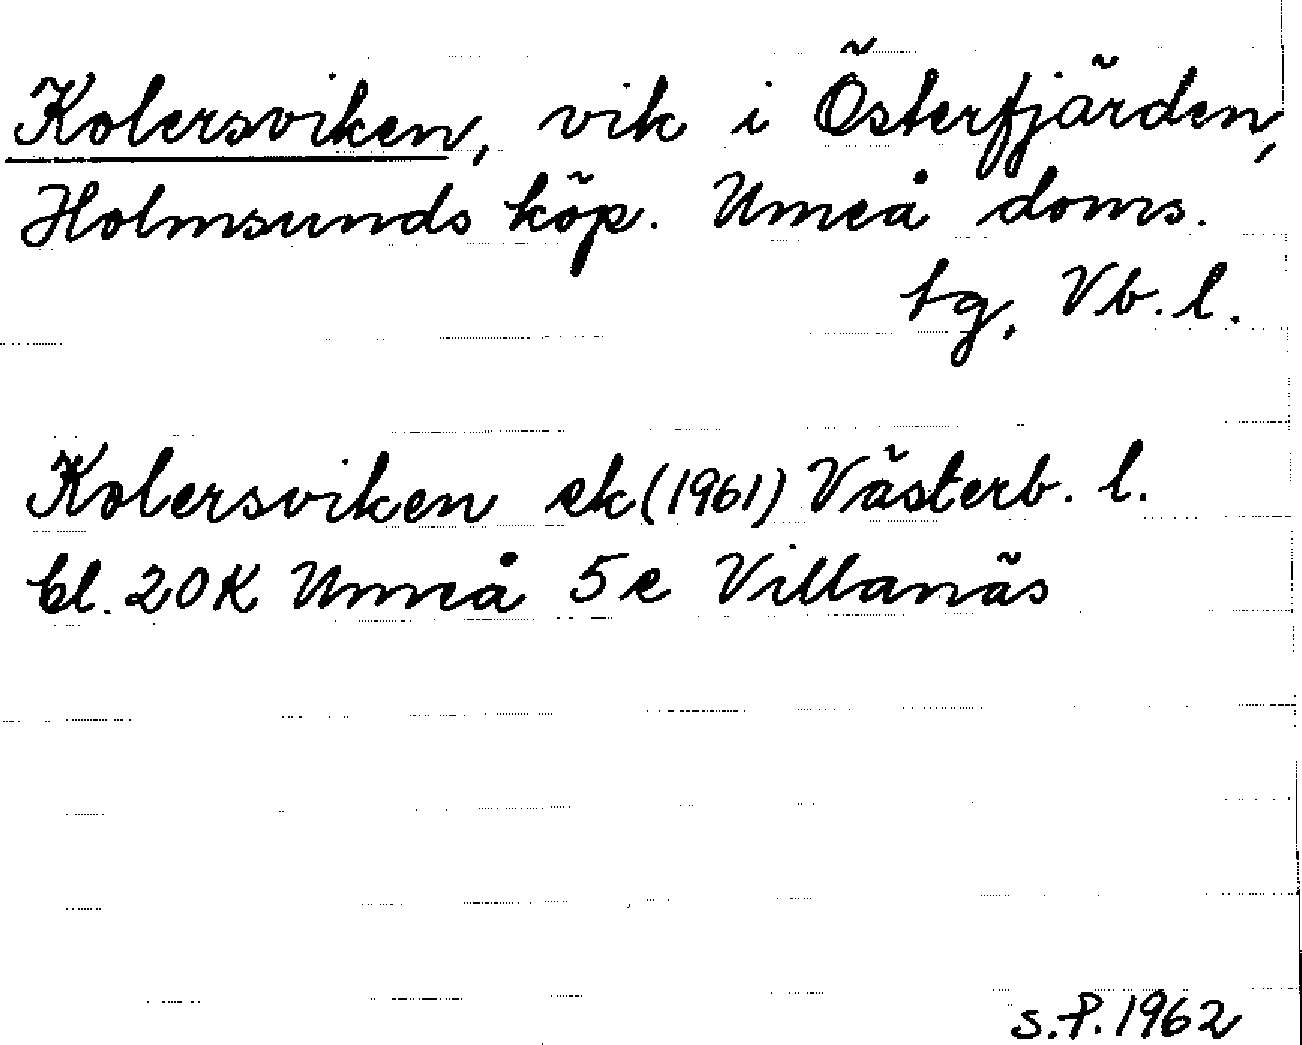 Kolersviken, vik i Österfjärden,
Holmsunds köp. Umeå doms.
tg, Vb. l.
Kolersviken ek (1961) Västerb. l.
bl. 20K Umeå 5e Villanäs
S.P. 1962